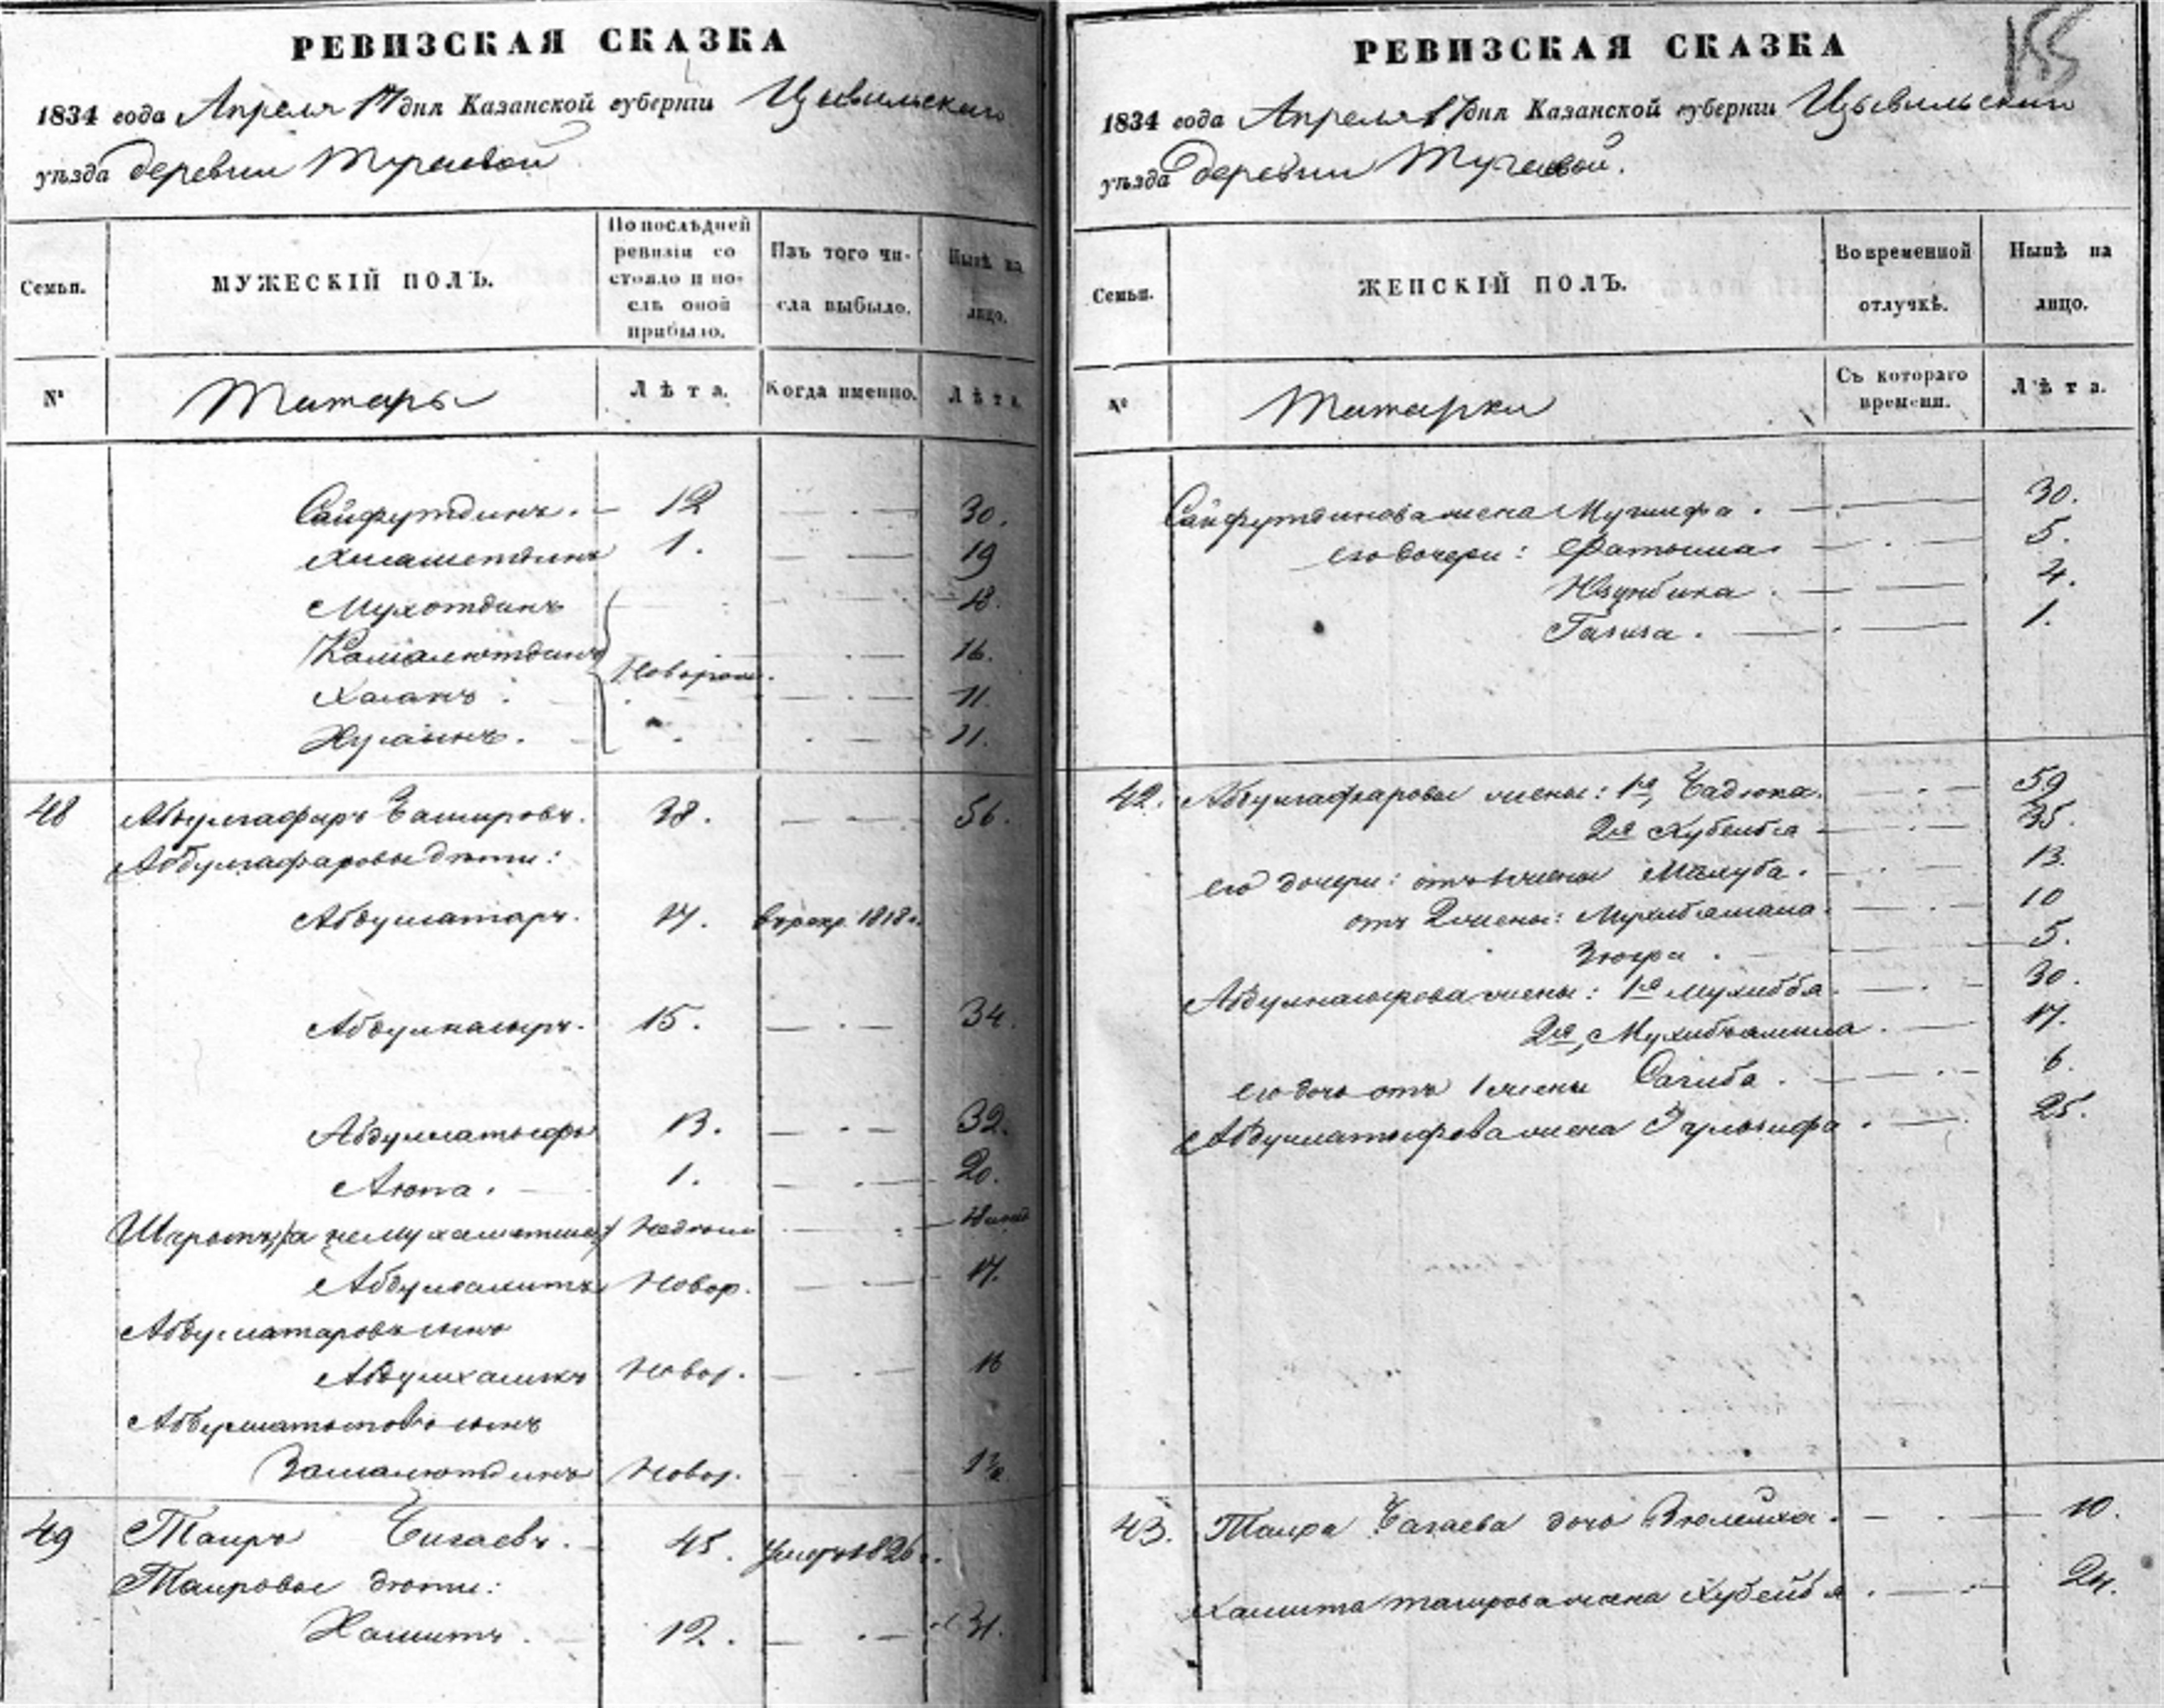 РЕВИЗСКАЯ СКАЗКА
1834 года Апреля 17 дня Казанской губернии Цывильскаго
уѣзда деревни Тугаевой
Семьи.
МУЖЕСКІЙ ПОЛЪ.
По послѣдней ревизіи состояло и послѣ оной прибыло.
Изъ того числа выбыло.
Нынѣ на лицо.
№
Татары
Лѣта.
Когда именно.
Лѣта.
Сайфутдинъ. 12 30.
1. 19
18.
Камалютдинъ Новорож. 16.
Хасанъ 11.
Хусаинъ. 11.
48 Абдулгафаръ Башировъ. 38. 56.
Абдулгафаровы дѣти:
Абдулсатаръ. 17. в рекр. 1818 г.
Абдулнасыръ. 15. 34.
Абдуллатыфъ 13. 32.
Аюпа. 1. 20.
Абдулвалитъ Новор. 17.
Абдулсатаровъ сынъ
Абдулхаликъ Новор. 16
сынъ
Замалютдинъ Новор. 1½
49 Таиръ 45. умеръ 1826 г.
Таировы дѣти:
Хамитъ. 12. 31.
РЕВИЗСКАЯ СКАЗКА
155
1834 года Апреля 17 дня Казанской губернии Цывильскаго
уѣзда деревни Тугаевой.
Семьи.
ЖЕНСКІЙ ПОЛЪ.
Во временной отлучкѣ.
Нынѣ на лицо.
№
Татарки
Съ котораго времени.
Лѣта.
Сайфутдинова жена 30.
его дочери: Фатыма 5.
4.
1.
42. Абдулгафаровы жены: 1я, Бадюка. 59
2я Хубейбя 35.
его дочери: от 1 жены 13.
отъ 2 жены: 10
Зюгра 5.
Абдулнасырова жены: 1я Мухибя 30.
2я, 17.
его дочь отъ 1 жены Сагиба. 6.
Абдуллатыфова жена 25.
43. Таира дочь Зюлейха. 10.
Хамита таирова жена Хубейбя. 24.